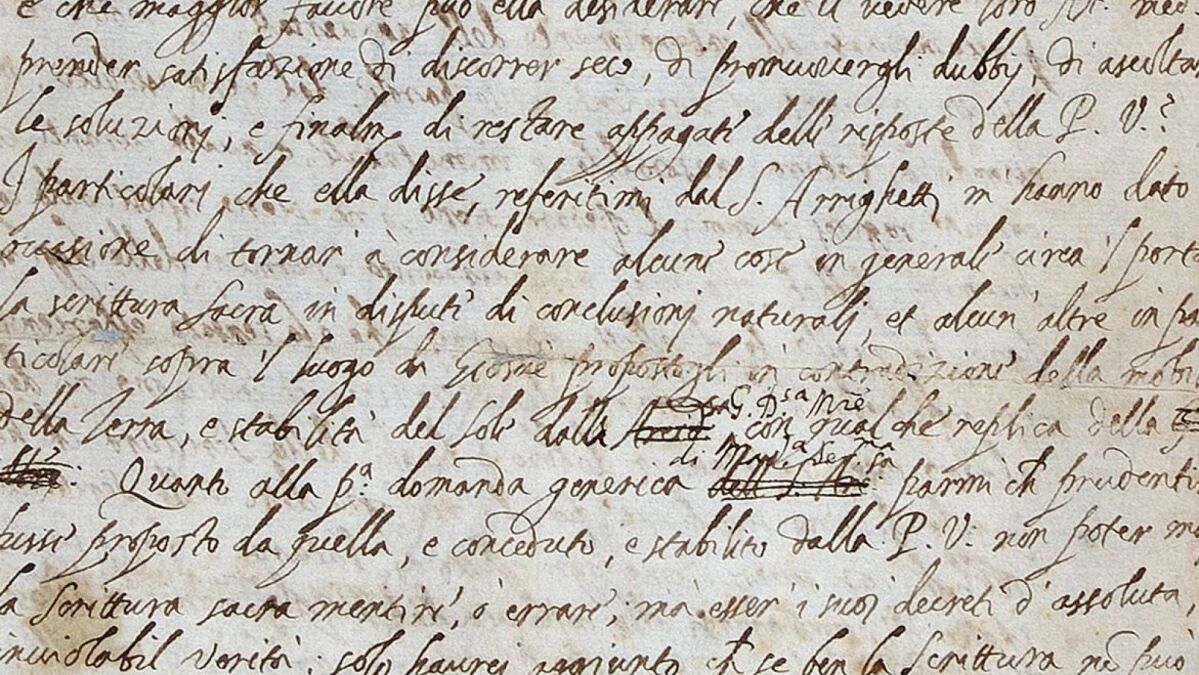 e che maggior favore può ella desiderare, che il vedere loro Al. med
prender satisfazione di discorrer seco, di promuovergli dubbij, di ascoltar
le soluzionj, e finalm di restare appagati delle risposte della P. V.?
I particolarj che ella disse, referitimi dal S. Arrighetti m hanno dato
occasione di tornar à considerare alcune cose in generale circa 'l porta
la scrittura sacra in dispute di conclusionj naturalj, et alcun' altre in pa
ticolare sopra 'l luogo di Giosuè propostogli in contradizione della mobi
della Terra, e stabilità del Sole dalla G. D.sa M.re con qualche replica della
di Mad.a Ser.ma
Quanto alla p.a domanda generica parmi ch prudenti
fusse proposto da quella, e conceduto, e stabilito dalla P. V. non poter m
la scrittura sacra mentire, ò errare; mà esser' i suoi decreti d' assoluta,
inviolabil verità; solo haurej aggiunto ch se ben la Scrittura nō può